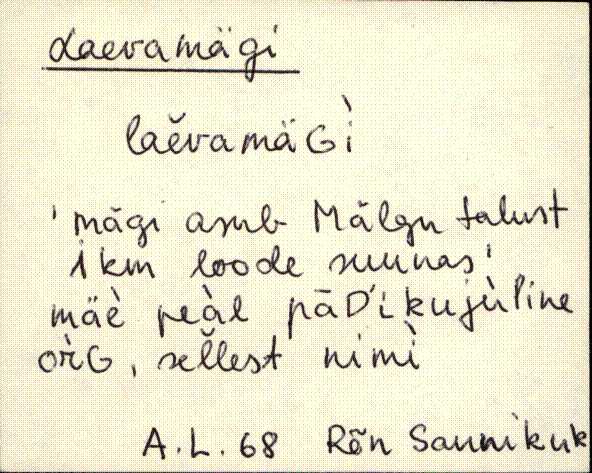 Laevamägi
laĕvamäGì
'mägi asub Mälgu talust
1 km loode suunas'
mäè peàl pāD́ikujùline
orG̀, sellest nimì
A.L. 68 Rõn Saunikuk